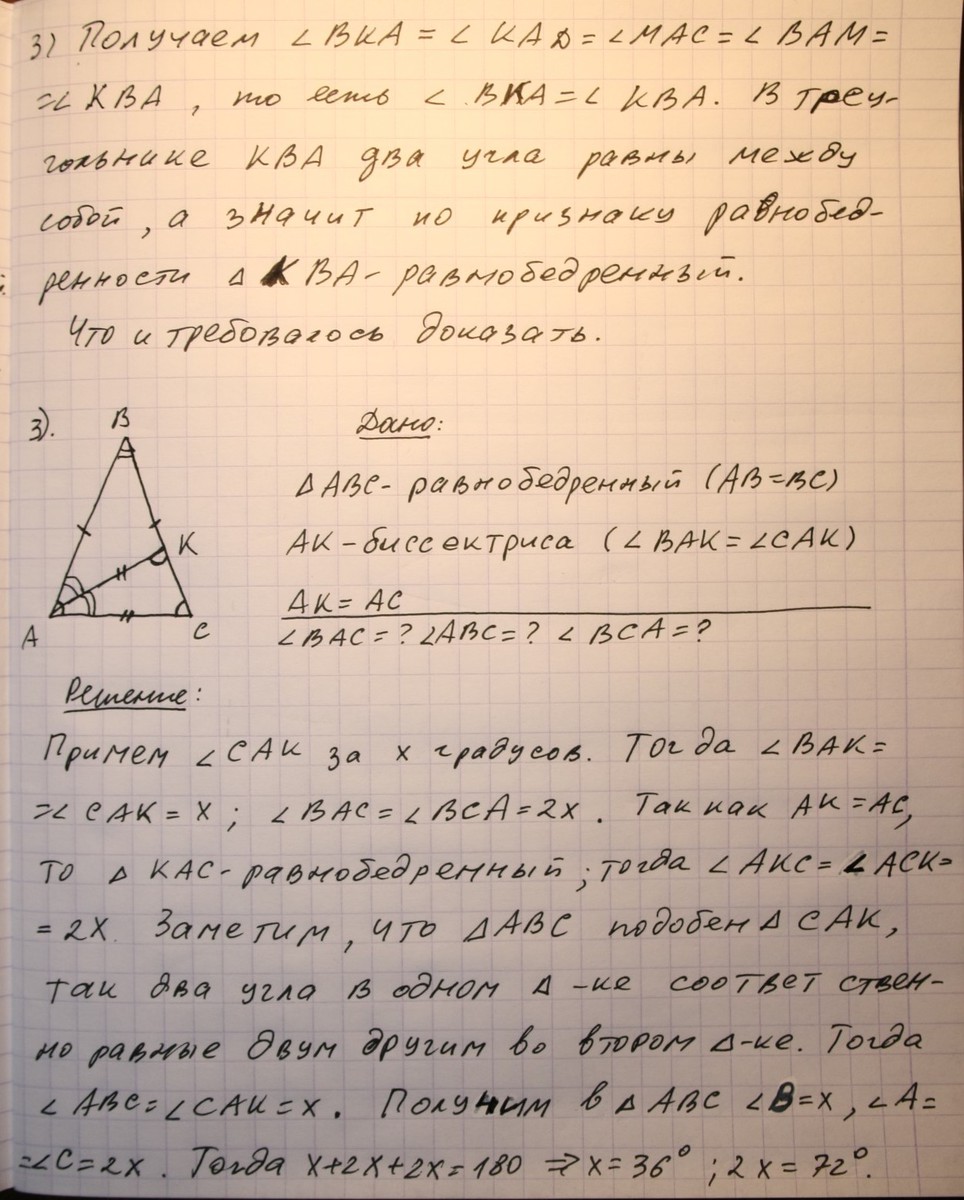 3) Получаем ∠BKA = ∠KAD = ∠MAC = ∠BAM =
= ∠KBA, то есть ∠BKA = ∠KBA. В треу-
гольнике KBA два угла равны между
собой, а значит по признаку равнобед-
ренности Δ KBA - равнобедренный.
Что и требовалось доказать.
3).
B
K
A
C
Дано:
ΔABC - равнобедренный (AB=BC)
AK - биссектриса (∠BAK = ∠CAK)
AK = AC
∠BAC = ? ∠ABC = ? ∠BCA = ?
Решение:
Примем ∠CAK за x градусов. Тогда ∠BAK =
= ∠CAK = x; ∠BAC = ∠BCA = 2x. Так как AK = AC,
то Δ KAC - равнобедренный; тогда ∠AKC = ∠ACK =
= 2x. Заметим, что ΔABC подобен Δ CAK,
так два угла в одном Δ-ке соответствен-
но равные двум другим во втором Δ-ке. Тогда
∠ABC = ∠CAK = x. Получим в Δ ABC ∠B = x, ∠A =
= ∠C = 2x. Тогда x + 2x + 2x = 180 ⇒ x = 36°; 2x = 72°.